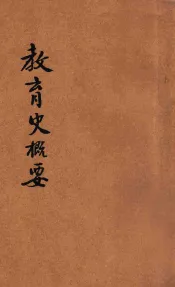 教育史概要